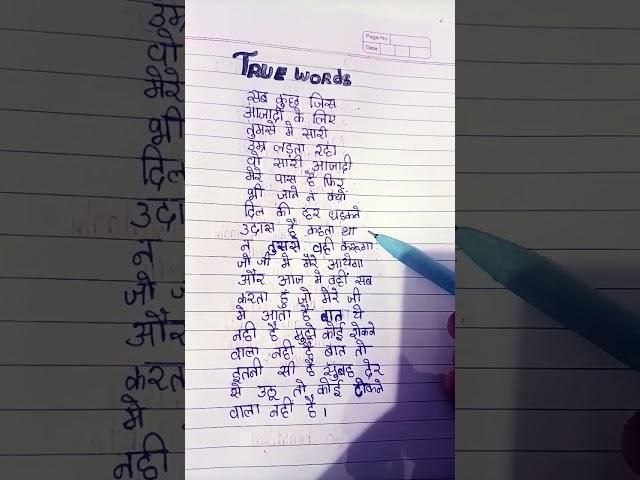 Page No.
Date
TRUE WORDS
सब कुछ जिस
आजादी के लिए
तुमसे मे सारी
उम्र लड़ता रहा
वो सारी आजादी
मेरे पास है फिर
भी जाने न क्यों
दिल की हर धड़कने
उदास है कहता था
न तुमसे वही करूंगा
जो जी मे मेरे आयेगा
और आज मे वही सब
करता हुं जो मेरे जी
मे आता है बात ये
नही है मुझे कोई रोकने
वाला नही है बात तो
इतनी सी है सुबह देर
से उठू तो कोई टोकने
वाला नहीं है।